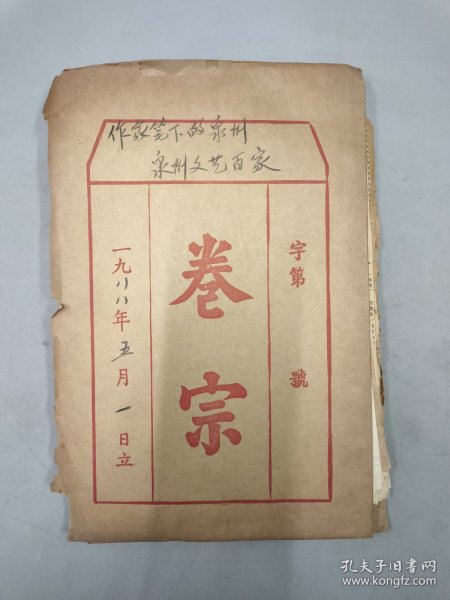 作家笔下的泉州
泉州文艺百家
字第 號
卷宗
一九八八年五月1日立
孔夫子旧书网
www.kongfz.com